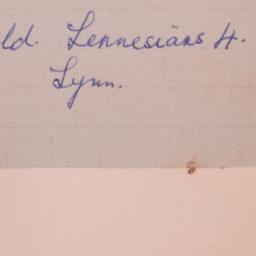 ld. Lennesians 4.
Lynn.